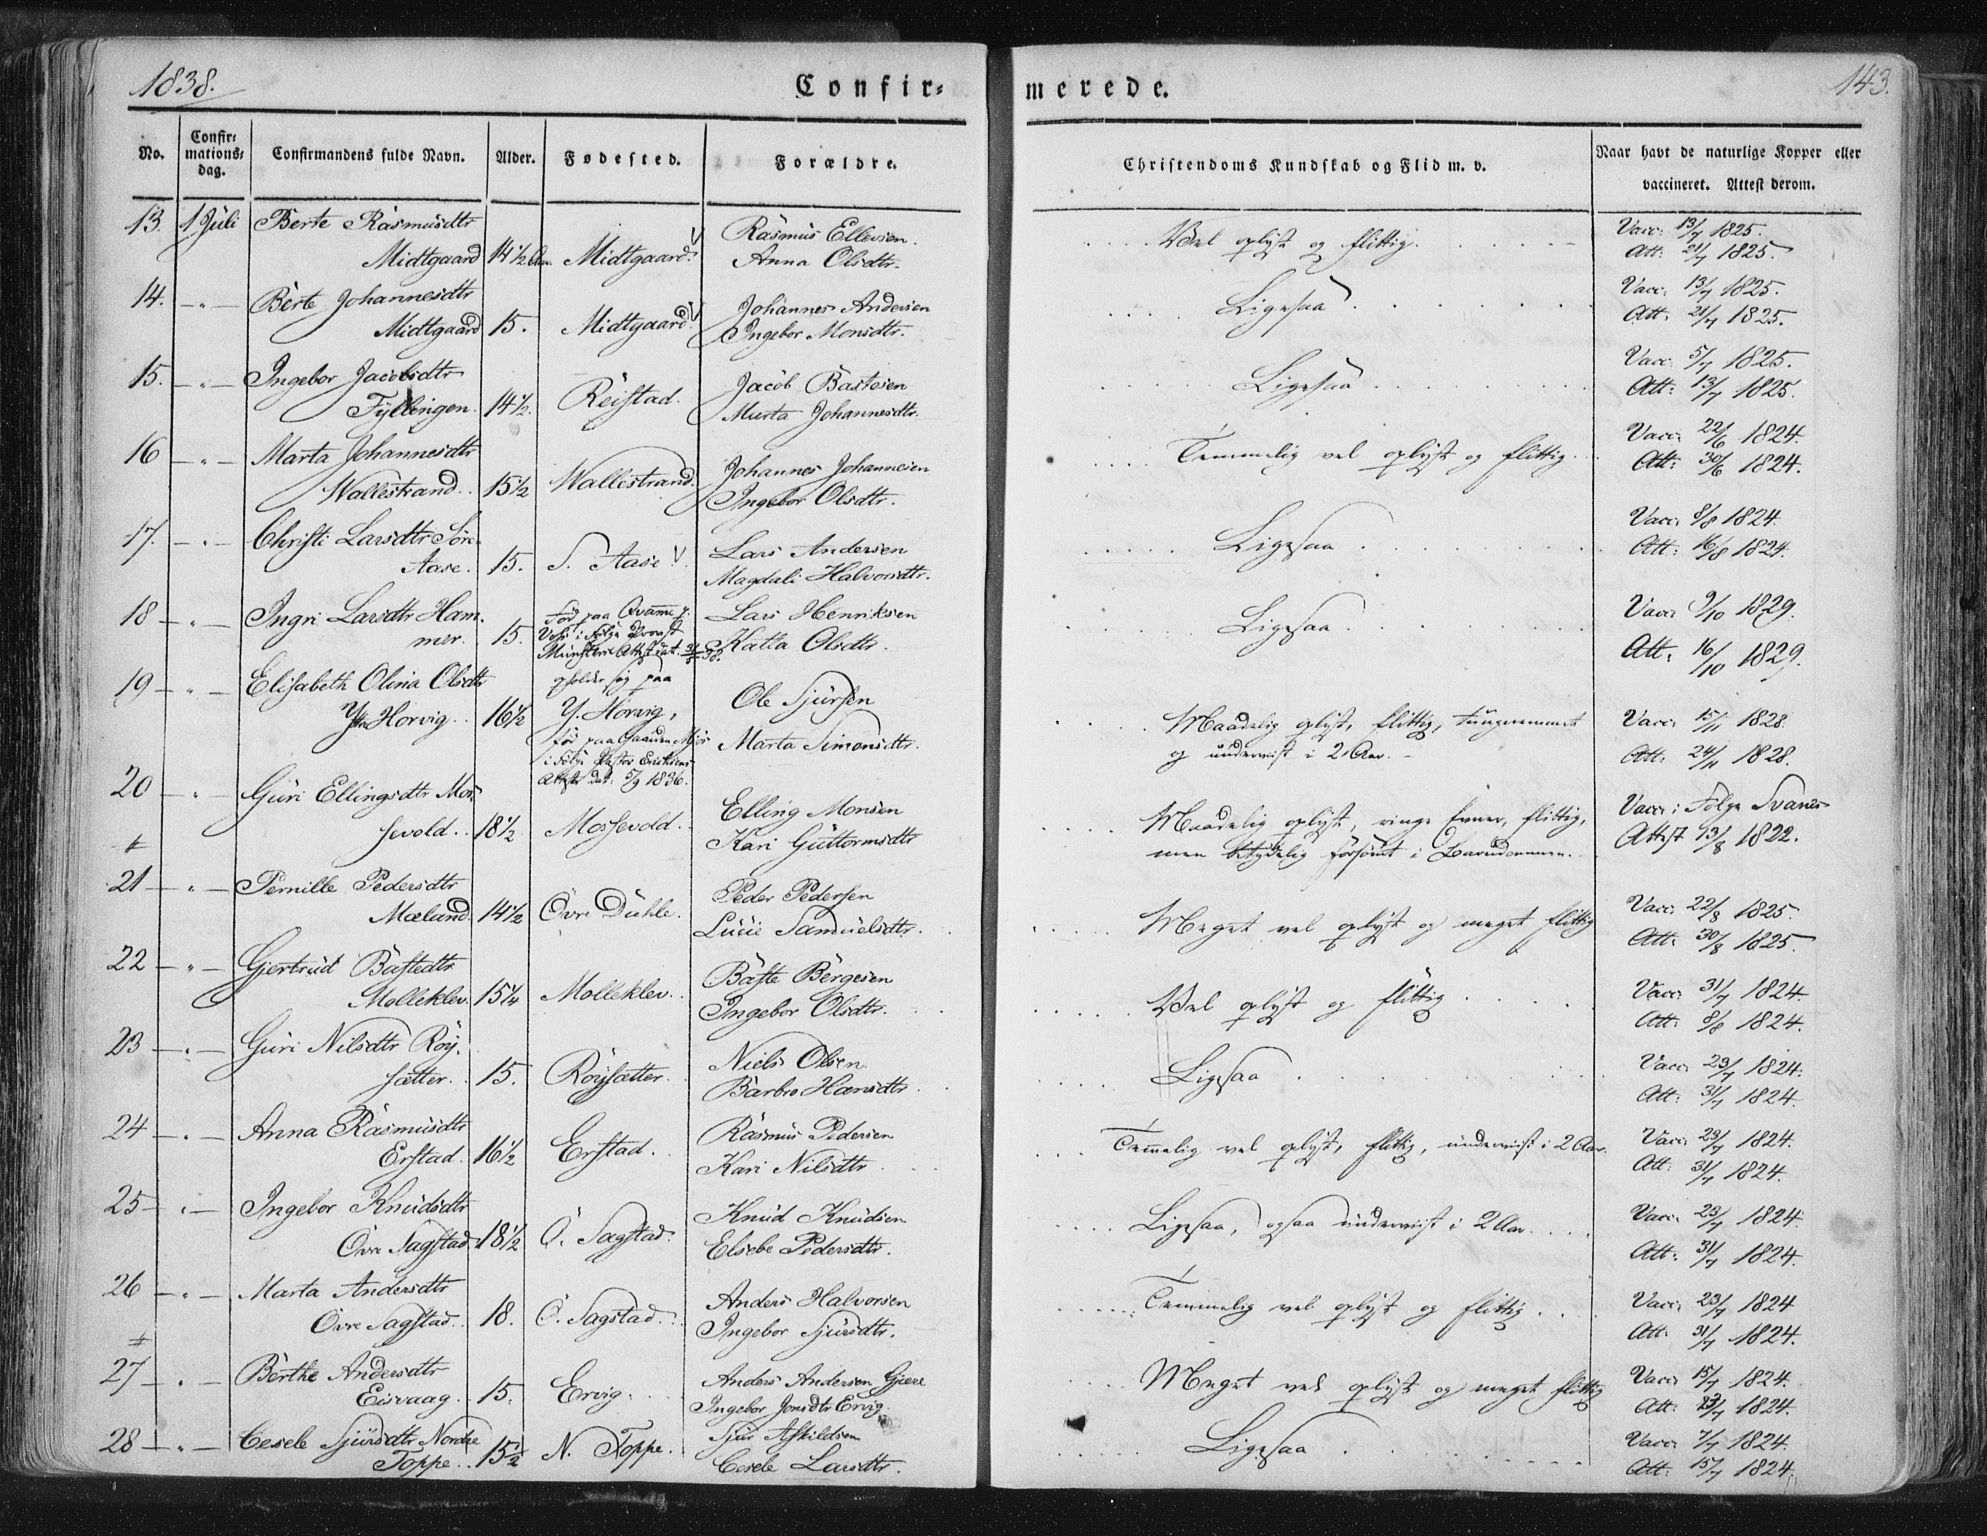 1838.
Confir=
merede.
143.
No.
Confir=
mations=
dag.
Confirmandens fulde Navn.
Alder.
Fødested.
Forældre.
Christendoms Kundskab og Flid m. v.
Naar havt de naturlige Kopper eller
vaccineret. Attest derom.
13. 1 Juli Berte Rasmusdtr
Midtgaard 14 1/2 Aar. Midtgaard.
Rasmus Ellevsen.
Anna Olsdtr.
Vel oplyst og flittig.
Vacc: 13/7 1825.
Att: 21/7 1825.
14. — " — Berte Johannesdtr
Midtgaard 15. Midtgaard.
Johannes Andersen
Ingebor Monsdtr.
Ligesaa
Vacc: 13/7 1825.
Att: 21/7 1825.
15. — " — Ingebor Jacobsdtr
Fyllingen. 14 1/2. Reistad.
Jacob Bastesen
Marta Johannesdtr.
Ligesaa
Vacc 5/7 1825.
Att: 13/7 1825.
16 — " — Marta Johannesdtr
Wallestrand. 15 1/2 Wallestrand.
Johannes Johannesen
Ingebor Olsdtr.
Temmelig vel oplyst og flittig.
Vacc: 22/6 1824.
Att: 30/6 1824.
17. — " — Christi Larsdtr Søre
Aase. 15. S. Aase
Lars Andersen
Magdali Halvorsdtr.
Ligesaa
Vacc: 8/8 1824.
Att: 16/8 1824.
18 — " — Ingri Larsdtr Ham-
mer. 15.
Fød paa Qvamme p.
Voss i Følge Provst
Münsters Attest dat. 31/5 38.
opholder sig paa
Lars Henriksen
Katla Olsdtr.
Ligesaa
Vacc: 9/10 1829.
Att: 16/10 1829.
19 — " — Elisabeth Olina Olsdtr
Yttre Horvig. 16 1/2 Y. Horvig,
fød paa Gaarden Mjør
i Følge Pastor Eriksens
Attest dat: 5/9 1836.
Ole Sjursen
Marta Simonsdtr.
Maadelig oplyst, flittig, tungnemmet
og underviist i 2 Aar.
Vacc: 15/11 1828.
Att: 24/11 1828.
20 — " — Guri Ellingsdtr Mos-
sevold. 18 1/2 Mossevold.
Elling Monsen
Kari Guttormsdtr
Maadelig oplyst, ringe Evner, flittig,
men betydelig forsømt i Barndommen.
Vacc: i Følge Svanes
Attest 13/8 1822.
21 — " — Pernille Pedersdtr
Mæland. 14 1/2 Övre Duhle.
Peder Pedersen
Lucie Samuelsdtr.
Meget vel oplyst og meget flittig
Vacc: 22/8 1825.
Att: 30/8 1825.
22 — " — Gjertrud Bastedtr
Molleklev. 15 1/4 Molleklev.
Baste Børgesen
Ingebor Olsdtr.
Vel oplyst og flittig
Vacc: 31/7 1824.
Att: 8/8 1824.
23 — " — Guri Nilsdtr Röy-
sætter. 15. Röysætter.
Niels Olsen
Barbro Hansdtr
Ligesaa
Vacc: 23/7 1824.
Att: 31/7 1824.
24 — " — Anna Rasmusdtr
Erstad. 16 1/2 Erstad.
Rasmus Pedersen
Kari Nilsdtr
Temelig vel oplyst, flittig, underviist i 2 Aar.
Vacc: 23/7 1824.
Att: 31/7 1824.
25 — " — Ingebor Knudsdtr
Övre Sagstad. 18 1/2 Ö. Sagstad.
Knud Knudsen
Elsebe Pedersdtr.
Ligesaa, ogsaa underviist i 2 Aar.
Vacc: 23/7 1824.
Att: 31/7 1824.
26 — " — Marta Andersdtr
Övre Sagstad. 18. Ö. Sagstad.
Anders Halvorsen
Ingebor Sjursdtr.
Temmelig vel oplyst og flittig
Vacc: 23/7 1824
Att: 31/7 1824.
27 — " — Berthe Andersdtr
Eisvaag. 15. Ervig.
Anders Andersen Gjere
Ingebor Jonsdtr Ervig.
Meget vel oplyst og meget flittig
Vacc: 15/7 1824.
Att: 23/7 1824.
28 — " — Cesele Sjursdtr Nordre
Toppe. 15 1/2 N. Toppe.
Sjur Askildsen
Cesele Larsdtr.
Ligesaa
Vacc: 7/7 1824.
Att: 15/7 1824.